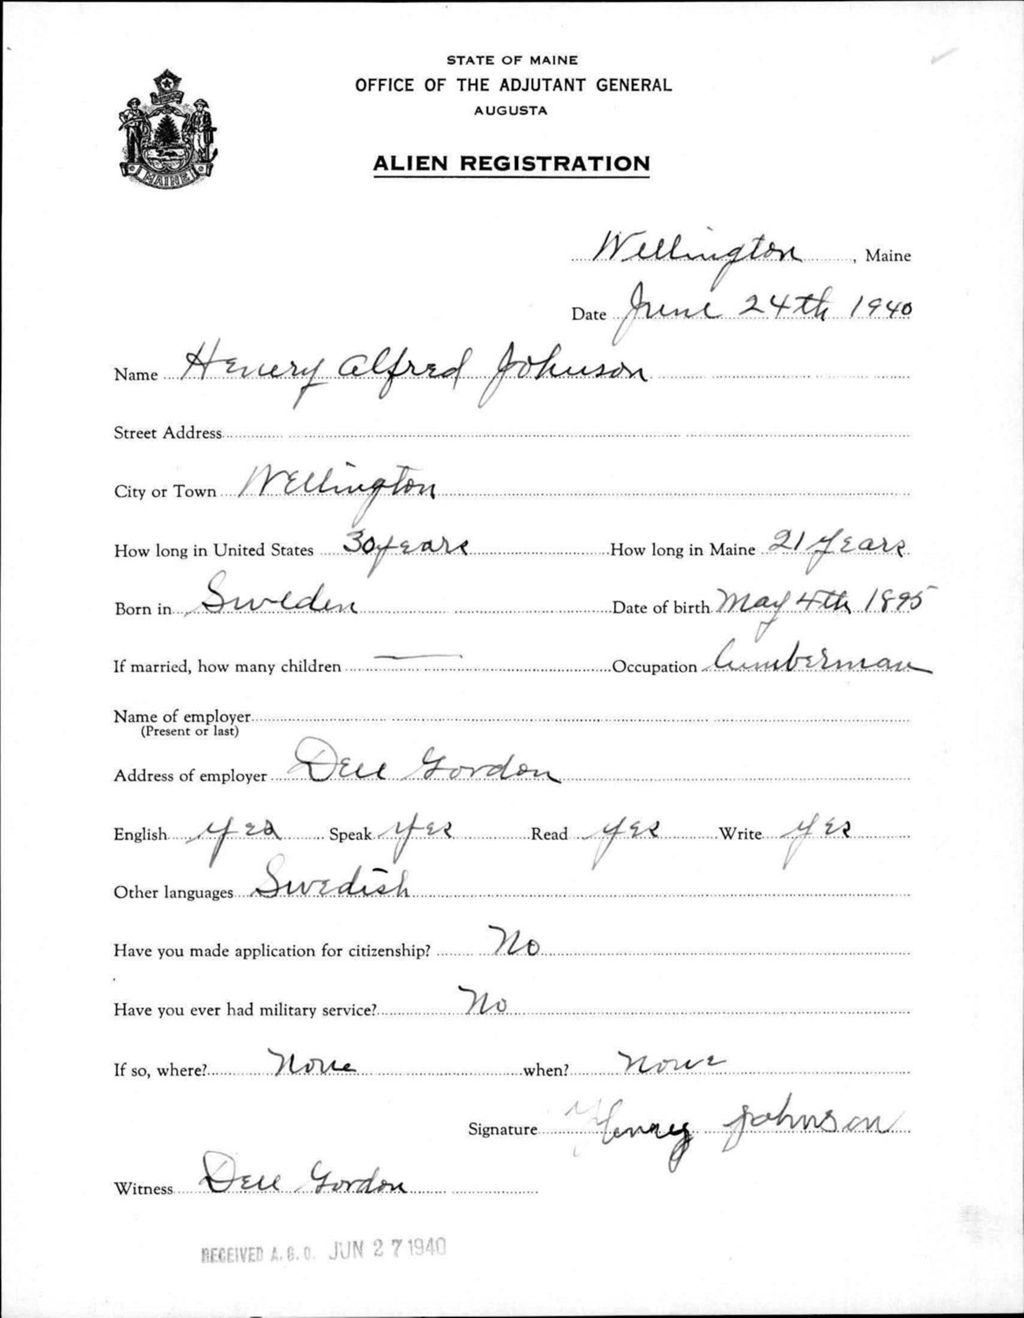 STATE OF MAINE
OFFICE OF THE ADJUTANT GENERAL
AUGUSTA
ALIEN REGISTRATION
MAINE
Wellington, Maine
Date June 24th 1940
Name Henery Alfred Johnson
Street Address
City or Town Wellington
How long in United States 30 years How long in Maine 21 years
Born in Sweden Date of birth May 4th 1895
If married, how many children — Occupation Lumberman
Name of employer
(Present or last)
Address of employer Dell Gordon
English yes Speak yes Read yes Write yes
Other languages Swedish
Have you made application for citizenship? No
Have you ever had military service? No
If so, where? None when? None
Signature Henrey Johnson
Witness Dell Gordon
RECEIVED A. G. O. JUN 27 1940